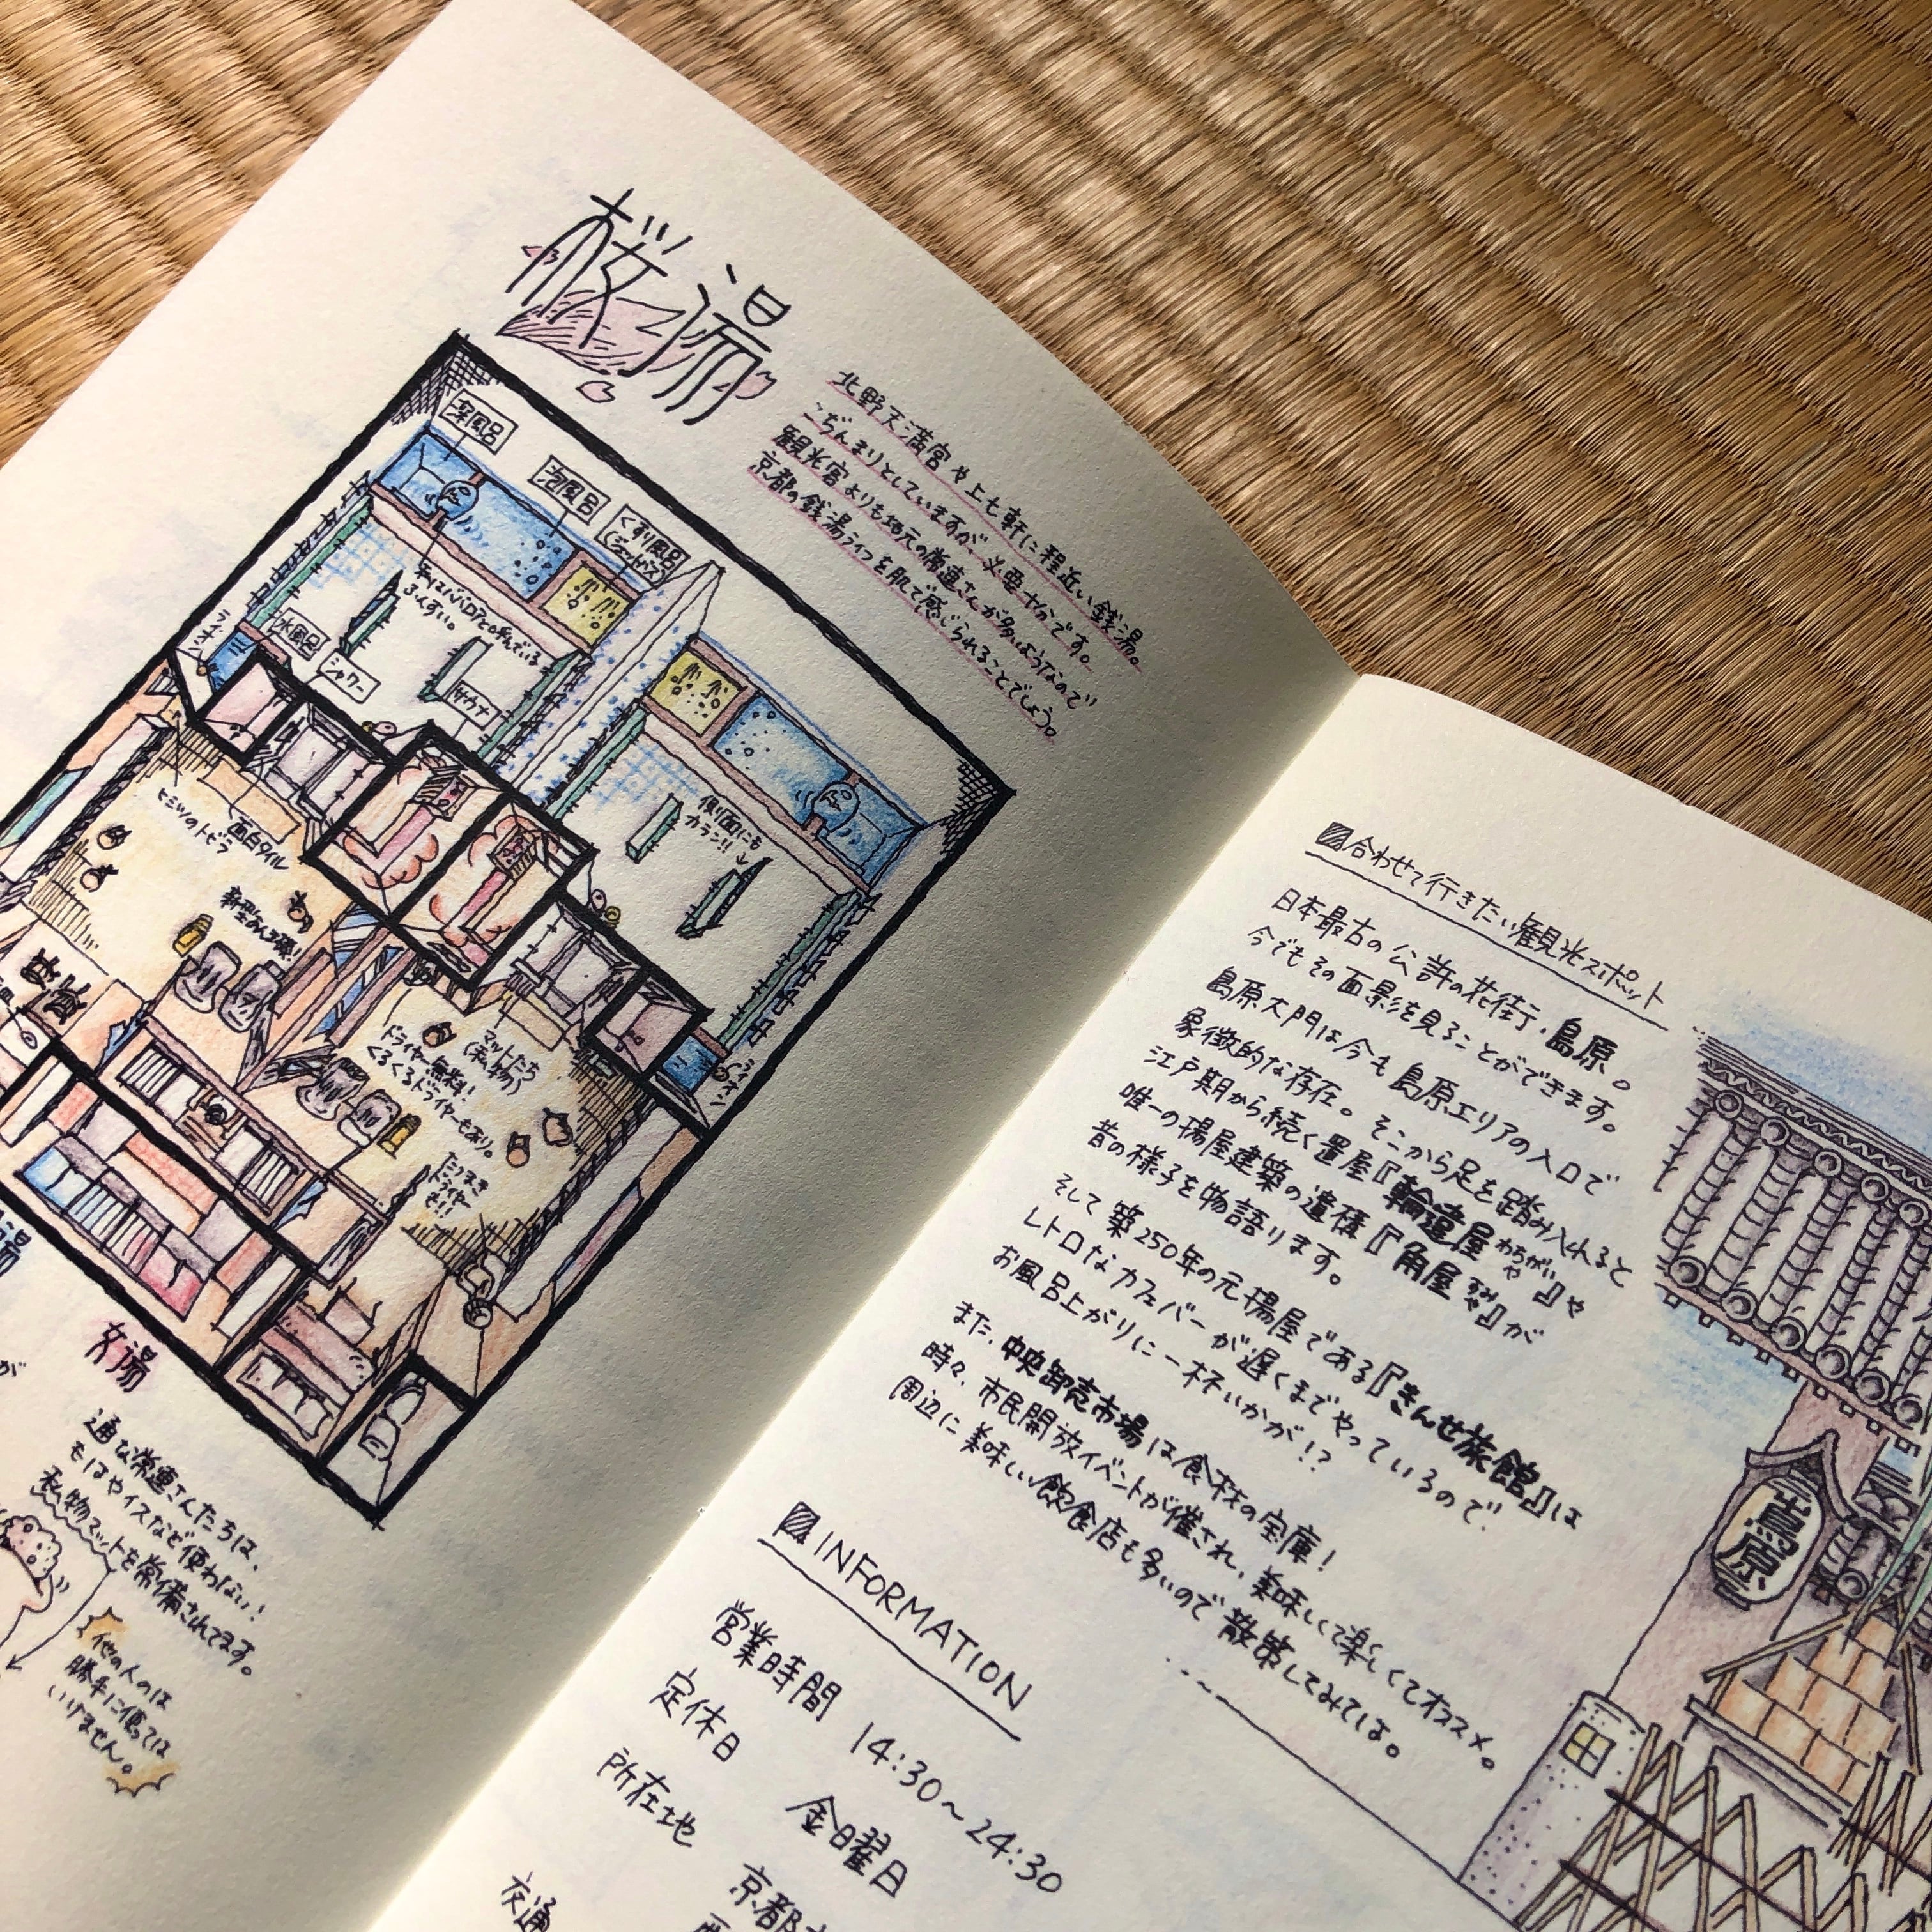 桜湯
北野天満宮や上七軒に程近い銭湯。
こぢんまりとしていますが、必要十分です。
観光客よりも地元の常連さんが多いようなので
京都の銭湯ライフを肌で感じられることでしょう。
深風呂
泡風呂
くすり風呂
(ジェットバス)
私はババロアと呼んでいる
ふんすい。
ライオン
水風呂
シャワー
サウナ
側面にも
カラン!!
ヒミツのトビラ
面白タイル
新型あんま機!
マットたち
(私物)
ドライヤー無料!
くるくるドライヤーもあり。
ライオン
女湯
が
通な常連さんたちは、
もはやイスなど使わない!
私物マットを常備されてます。
他の人のは
勝手に使っては
いけません。
合わせて行きたい観光スポット
日本最古の公許の花街・島原。
今でもその面影を見ることができます。
島原大門は今も島原エリアの入口で
象徴的な存在。そこから足を踏み入れると
江戸期から続く置屋『輪違屋わちがいや』や
唯一の揚屋建築の遺構『角屋すみや』が
昔の様子を物語ります。
そして築250年の元揚屋である『きんせ旅館』は
レトロなカフェバーが遅くまでやっているので、
お風呂上がりに一杯いかが!?
また、中央卸売市場は食材の宝庫!
時々、市民開放イベントが催され、美味しくて楽しくてオススメ。
周辺に美味しい飲食店も多いので散策してみては。
島原
INFORMATION
営業時間 14:30〜24:30
定休日 金曜日
所在地 京都
交通